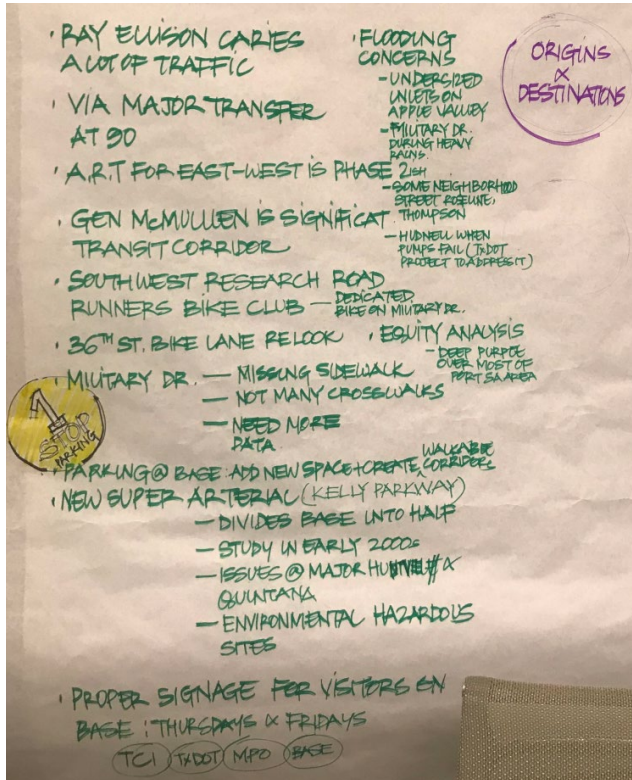 · RAY ELLISON CARIES
A LOT OF TRAFFIC
· VIA MAJOR TRANSFER
AT 90
· A.R.T FOR EAST-WEST IS PHASE 2ISH
· GEN McMULLEN IS SIGNIFICAT
TRANSIT CORRIDOR
· SOUTHWEST RESEARCH ROAD
RUNNERS BIKE CLUB — DEDICATED
BIKE ON MILITARY DR.
· 36TH ST. BIKE LANE RELOOK
· MILITARY DR. — MISSING SIDEWALK
— NOT MANY CROSSWALKS
— NEED MORE
DATA
1
STOP
PARKING
· PARKING @ BASE: ADD NEW SPACE + CREATE WALKABLE
CORRIDORS
· NEW SUPER ARTERIAL (KELLY PARKWAY)
— DIVIDES BASE INTO HALF
— STUDY IN EARLY 2000s
— ISSUES @ MAJOR &
QUINTANA
— ENVIRONMENTAL HAZARDOUS
SITES
· PROPER SIGNAGE FOR VISITORS ON
BASE : THURSDAYS & FRIDAYS
TCI TXDOT MPO BASE
· FLOODING
CONCERNS
— UNDERSIZED
INLETS ON
APPLE VALLEY
— MILITARY DR.
DURING HEAVY
RAINS.
— SOME NEIGHBORHOOD
STREET ROSELINE,
THOMPSON
— HUDNELL WHEN
PUMPS FAIL (TXDOT
PROJECT TO ADDRESS IT)
· EQUITY ANALYSIS
— DEEP PURPLE
OVER MOST OF
PORT SA AREA
ORIGINS
&
DESTINATIONS